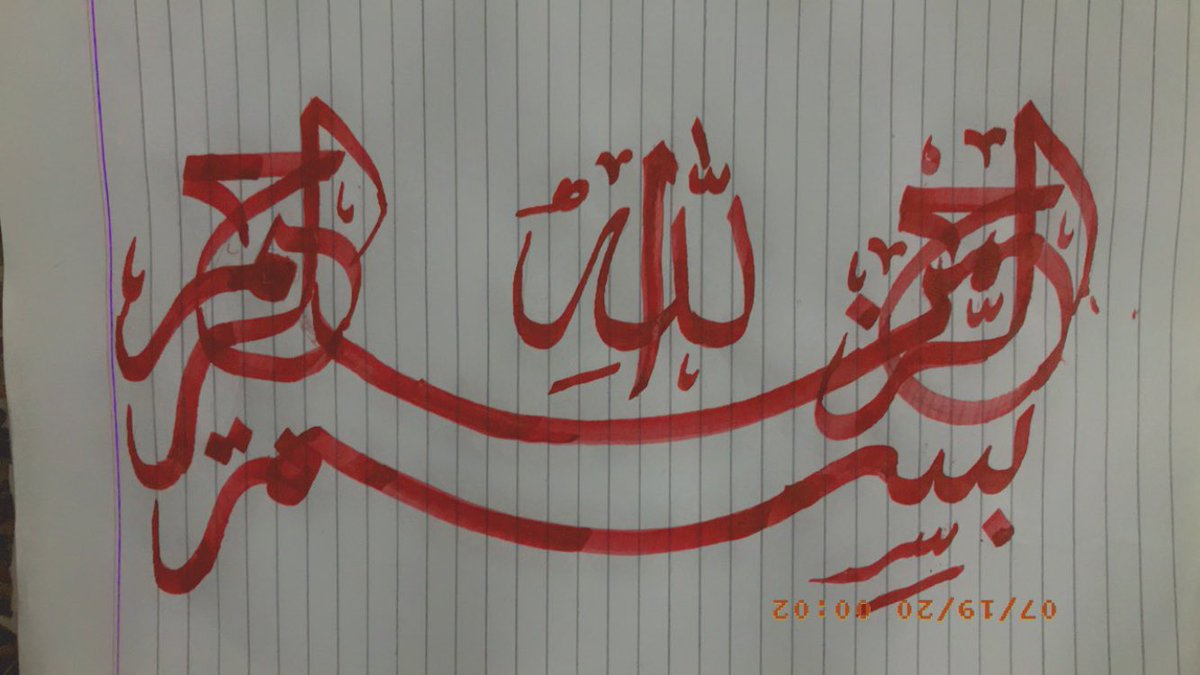 بسم الله الرحمن الرحيم
07/19/20 00:02